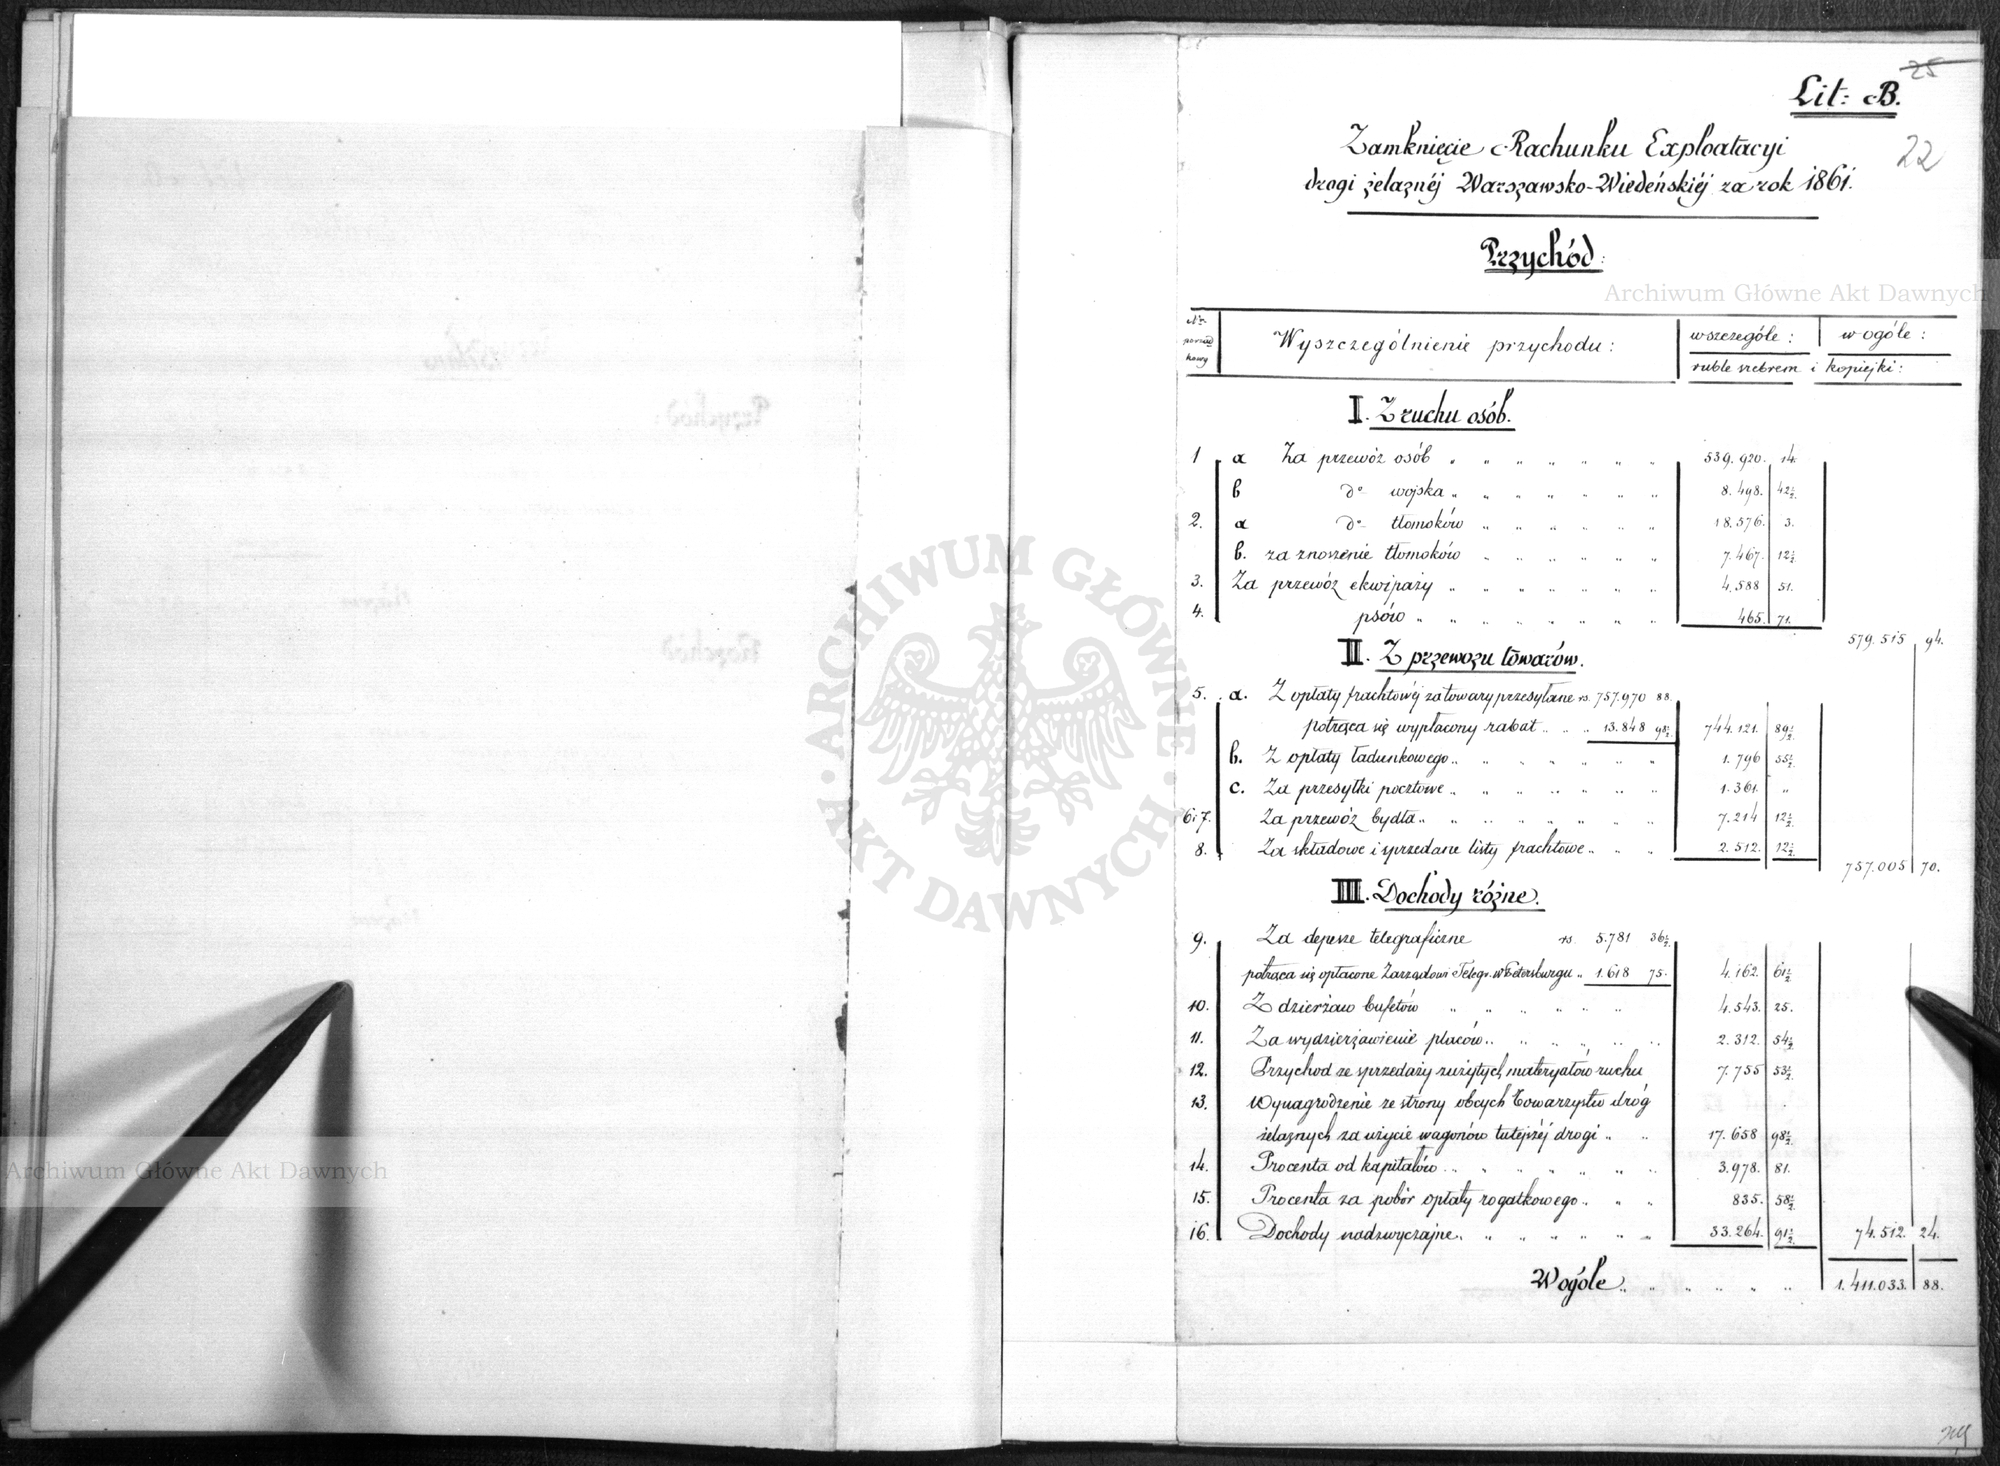 25
Lit: B.
22
Zamknięcie Rachunku Exploatacyi
drogi żelaznéj Warszawsko-Wiedeńskiéj za rok 1861.
Przychód:
Nr porządkowy Wyszczególnienie przychodu: wszczególe: w ogóle:
ruble srebrem i kopiejki:
I. Z ruchu osób.
1 a Za przewóz osób „ „ „ „ „ „ „ 539.920. 14.
b do wojska „ „ „ „ „ „ „ 8.498. 42½.
2. a do tłomoków „ „ „ „ „ „ 18.576. 3.
b. za znoszenie tłomoków „ „ „ „ „ „ 7.467. 12½
3. Za przewóz ekwipaży „ „ „ „ „ „ „ 4.588 51.
4. psów „ „ „ „ „ „ „ „ 465. 71.
579.515 94.
II. Z przewozu towarów.
5. a. Z opłaty frachtowéj za towary przesyłane rs. 757.970 88.
potrąca się wypłacony rabat „ „ „ 13.848 98½. 744.121. 89½
b. Z opłaty ładunkowego „ „ „ „ „ „ „ 1.796 55½
c. Za przesyłki pocztowe „ „ „ „ „ „ „ 1.361. „
6 i 7. Za przewóz bydła „ „ „ „ „ „ „ „ 7.214 12½.
8. Za składowe i sprzedane listy frachtowe „ „ „ 2.512. 12½
757.005 70.
III. Dochody różne.
9. Za depesze telegraficzne rs. 5.781 36½.
potrąca się opłacone Zarządowi Telegr. w Petersburgu „ 1.618 75. 4.162. 61½
10. Z dzierżaw bufetów „ „ „ „ „ „ 4.543. 25.
11. Za wydzierżawienie placów „ „ „ „ „ „ 2.312. 54½
12. Przychod ze sprzedaży zużytych materyałów ruchu 7.755 53½.
13. Wynagrodzenie ze strony obcych Towarzystw dróg
żelaznych za użycie wagonów tutejszéj drogi „ „ 17.658 98½
14. Procenta od kapitałów „ „ „ „ „ „ „ 3.978. 81.
15. Procenta za pobór opłaty rogatkowego „ „ „ 835. 58½
16. Dochody nadzwyczajne „ „ „ „ „ „ „ 33.264. 91½. 74.512. 24.
Wogóle „ „ „ „ „ „ 1.411.033. 88.
Archiwum Główne Akt Dawnych
ARCHIWUM GŁÓWNE · AKT DAWNYCH ·
Archiwum Główne Akt Dawnych